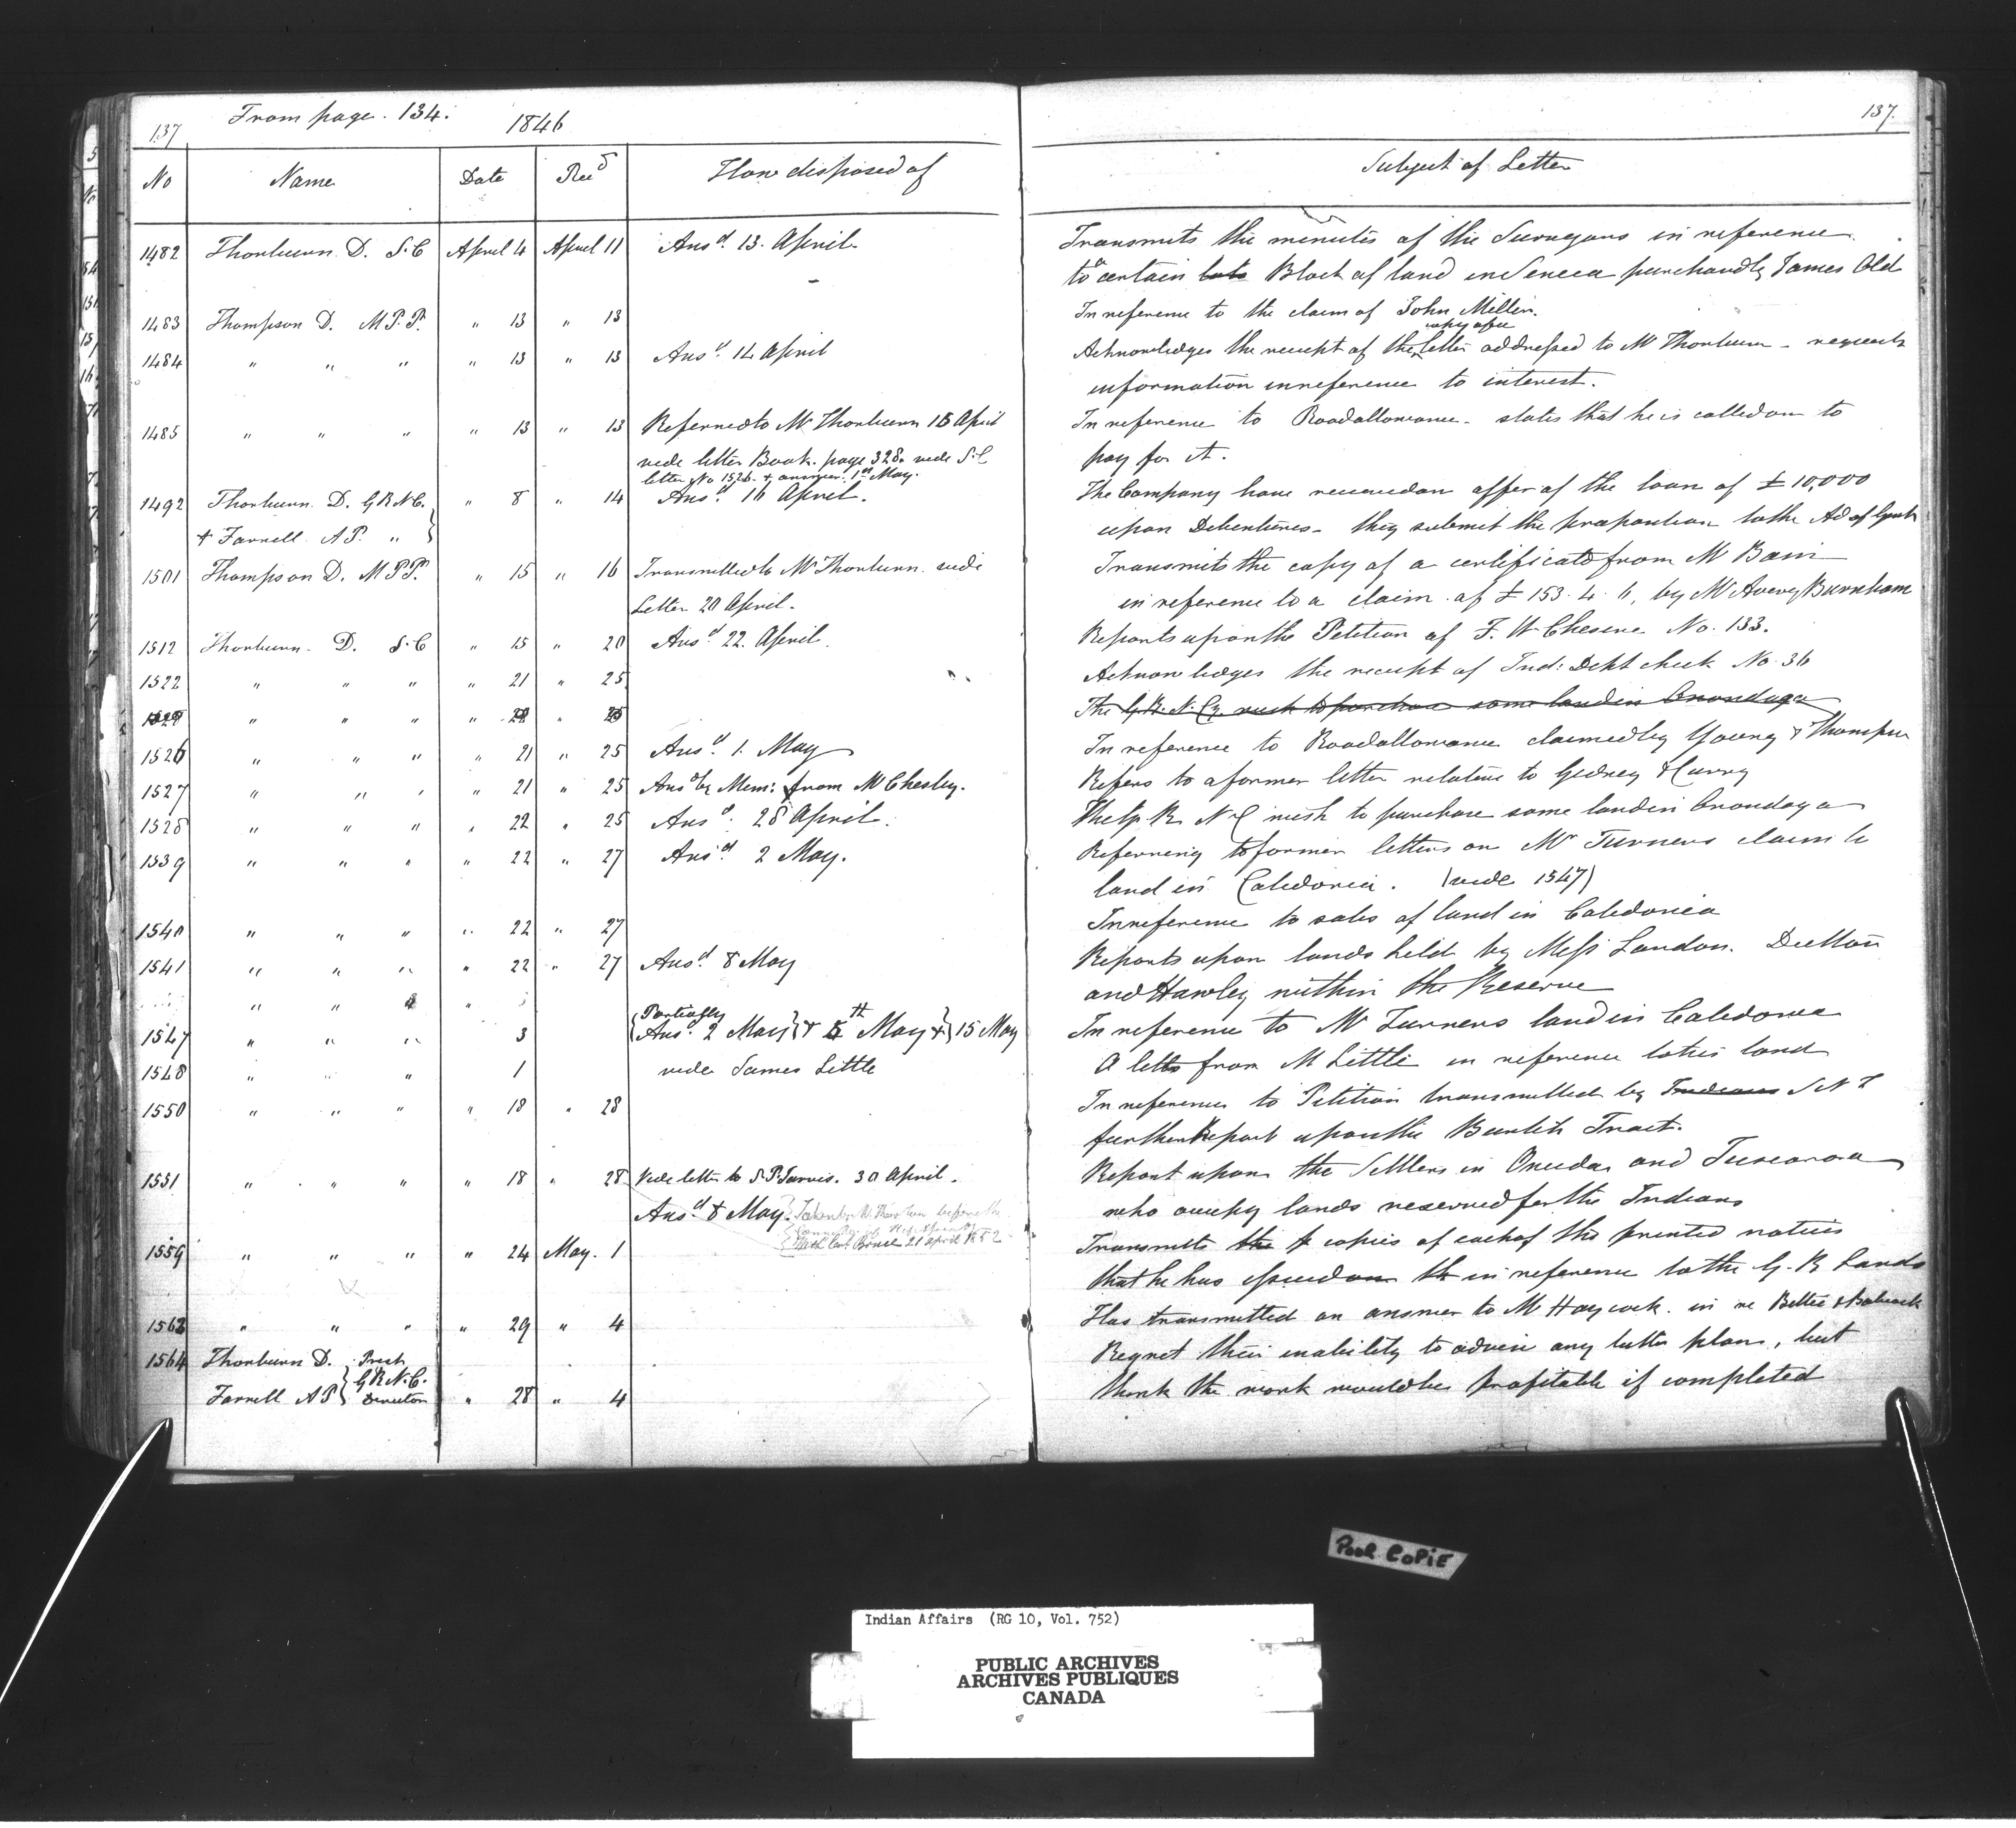 137 From page . 134. 1846
No Name Date Rec^d How disposed of
1482 Thorburn D. S.C April 4 April 11 Ans^d. 13. April
1483 Thompson D. M.P.P. " 13 " 13
1484 " " " " 13 " 13 Ans^d. 14 April
1485 " " " " 13 " 13 Referred to Mr Thorburn 15 April
vide letter Book. page 328. vide S.C
letter No 1526. & answer. 1st May.
1492 Thorburn. D. G R N C. " 8 " 14 Ans^d. 16 April.
+ Farrell. A P. "
1501 Thompson D. M P P. " 15 " 16 Transmitted to Mr Thorburn. vide
Letter 20 April.
1512 Thorburn. D. S.C " 15 " 20 Ans^d. 22. April.
1522 " " " " 21 " 25
" " " "
1526 " " " " 21 " 25 Ans^d. 1. May
1527 " " " " 21 " 25 Ans^d by Mem: from Mr Chesley.
1528 " " " " 22 " 25 Ans^d. 28 April.
1539 " " " " 22 " 27 Ans^d. 2 May.
1540 " " " " 22 " 27
1541 " " " " 22 " 27 Ans^d. 8 May
" " "
Partially
1547 " " " 3 Ans^d. 2 May & 5th May & 15 May
1548 " " " 1 vide James Little
1550 " " " " 18 " 28
1551 " " " " 18 " 28 Vide letter to S. P. Jarvis. 30 April.
Ans^d 8 May.
21 April 1852
1559 " " " " 24 May. 1
1563 " " " " 29 " 4
1564 Thorburn D. Prest
G R N. C.
Farrell A P Director " 28 " 4
137.
Subject of Letter
Transmits the minutes of the Surveyors in reference
to a certain lots Block of land in Seneca purchased by James Old
In reference to the claim of John Miller.
copy of the
Acknowledges the receipt of the letter addressed to Mr Thorburn - requests
information in reference to interest.
In reference to Road allowance - states that he is called on to
pay for it.
The Company have received an offer of the loan of £ 10,000
upon Debentures - they submit the proposition to the Ad of Govt
Transmits the copy of a certificate from Mr Bain
in reference to a claim of £ 153. 4. 6, by Mr Avery Burnham
Reports upon the Petition of F. W Chesene No. 133.
Acknowledges the receipt of Ind: Dept check No. 36
The G. R. N. Cy. wish to purchase some land in Onondaga
In reference to Road allowance claimed by Young & Thompson
Refers to a former letter relative to Gidney & Curry
The G. R N C wish to purchase some land in Onondaga
Referring to former letters on Mr Turners claim to
land in Caledonia. (vide 1547)
In reference to sales of land in Caledonia
Reports upon lands held by Messrs Landon. Dutton
and Hawley within the Reserve
In reference to Mr Turners land in Caledonia
A letter from Mr Little in reference to his land
In reference to Petition transmitted by Indians
further Report upon the Burtch Tract.
Report upon the Settlers in Oneida and Tuscarora
who occupy lands reserved for the Indians
Transmits the copies of each of the printed notices
that he has issued in reference to the G. R Lands
Has transmitted an answer to Mr Haycock. in re
Regret their inability to advise any better plan, but
think the work would be profitable if completed
Poor Copie
Indian Affairs (RG 10, Vol. 752)
PUBLIC ARCHIVES
ARCHIVES PUBLIQUES
CANADA